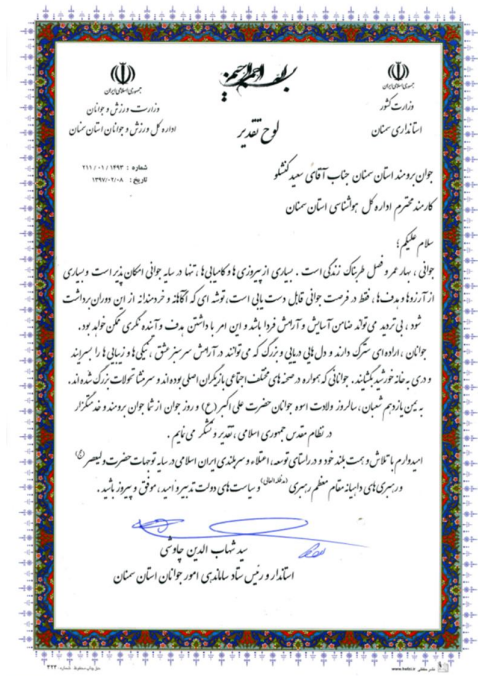 بسم الله الرحمن الرحیم
جمهوری اسلامی ایران
وزارت کشور
استانداری سمنان
جمهوری اسلامی ایران
وزارت ورزش و جوانان
اداره کل ورزش و جوانان استان سمنان
لوح تقدیر
شماره : ۲۱۱/۰۱/۱۴۹۳
تاریخ : ۱۳۹۷/۰۲/۰۸
جوان برومند استان سمنان جناب آقای سعید کنشلو
کارمند محترم اداره کل هواشناسی استان سمنان
سلام علیکم؛
جوانی ، بهار عمر و فصل طربناک زندگی است . بسیاری از پیروزی ها و کامیابی ها ، تنها در سایه جوانی امکان پذیر است و بسیاری
از آرزوها و هدف ها ، فقط در فرصت جوانی قابل دست یابی است، توشه ای که آگاهانه و خردمندانه از این دوران برداشت
شود ، بی تردید می تواند ضامن آسایش و آرامش فردا باشد و این امر با داشتن هدف و آینده نگری ممکن خواهد بود.
جوانان ، اراده ای سترگ دارند و دل هایی دریایی و بزرگ که می توانند در آرامش سرسبز عشق ، نیکی ها و زیبایی ها را بسرایند
و دری به خانه خورشید بگشایند. جوانانی که همواره در صحنه های مختلف اجتماعی بازیگران اصلی بوده اند و سرمنشا تحولات بزرگ شده اند.
به یمن یازدهم شعبان، سالروز ولادت اسوه جوانان حضرت علی اکبر(ع) و روز جوان از شما جوان برومند و خدمتگزار
در نظام مقدس جمهوری اسلامی ، تقدیر و تشکر می نمایم .
امیدوارم با تلاش و همت بلند خود و در راستای توسعه، اعتلاء و سربلندی ایران اسلامی در سایه توجهات حضرت ولیعصر(عج)
و رهبری های داهیانه مقام معظم رهبری (مدظله العالی) و سیاست های دولت تدبیر و امید، موفق و پیروز باشید .
سید شهاب الدین چاوشی
استاندار و رئیس ستاد ساماندهی امور جوانان استان سمنان